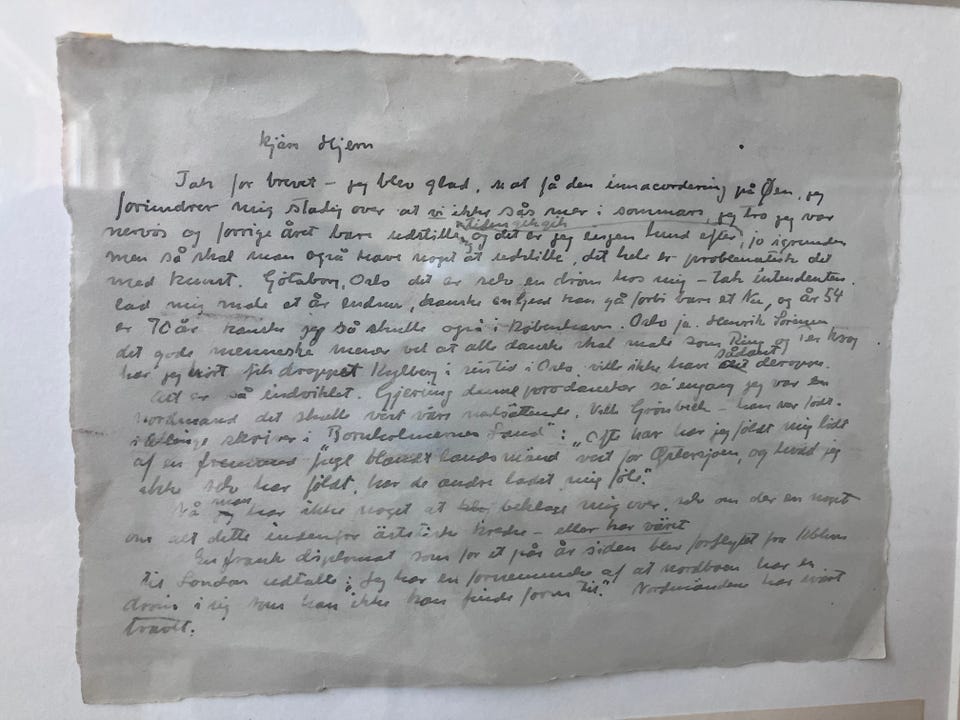 Kjäre Hjern
Tak for brevet – jeg blev glad, at få den på Øen, jeg
forundrer mig stadig over at vi ikke sås mer i sommars, jeg tro jeg var
nervös og forrige året bare udstille, tiden gik og det er jeg ingen hund efter, jo
men så skal man også have noget at udstille, det hele er problematisk det
med Kunst. Göteborg, Oslo det er selv en dröm hos mig – tak intendenten
lad mig male et år endnu, kanske kan gå forbi bare et Nu, og år 54
er 70 år kanske jeg så skulle også i København. Oslo ja. Henrik Sörensen
det gode menneske mener vel at alle danske skal male som Ring og
har jeg hört fik droppet Kylberg i sin tid i Oslo, ville ikke have sådant deroppe.
Alt er så indviklet. Gjerning denne så engang jeg var en
nordmand det skulle vert vårs Vilh. Grönbech – han var födt
i Allinge skriver i "Bornholmernes Land": "Ofte har har jeg földt mig lidt
af en fremmed fugl blandt landsmänd vest for Östersjöen, og hvad jeg
ikke selv har földt, har de andre ladet mig föle."
Nå man har ikke noget at beklage mig over, selv om der en noget
om alt dette indenfor kredse – eller har väret
En fransk diplomat som for et par år siden blev forflyttet fra Kbhvn
til London udtalte: Jeg har en fornemmelse af at nordboen har en
dröm i sig som han ikke kan finde form til." Nordmändene har svärt
travlt.